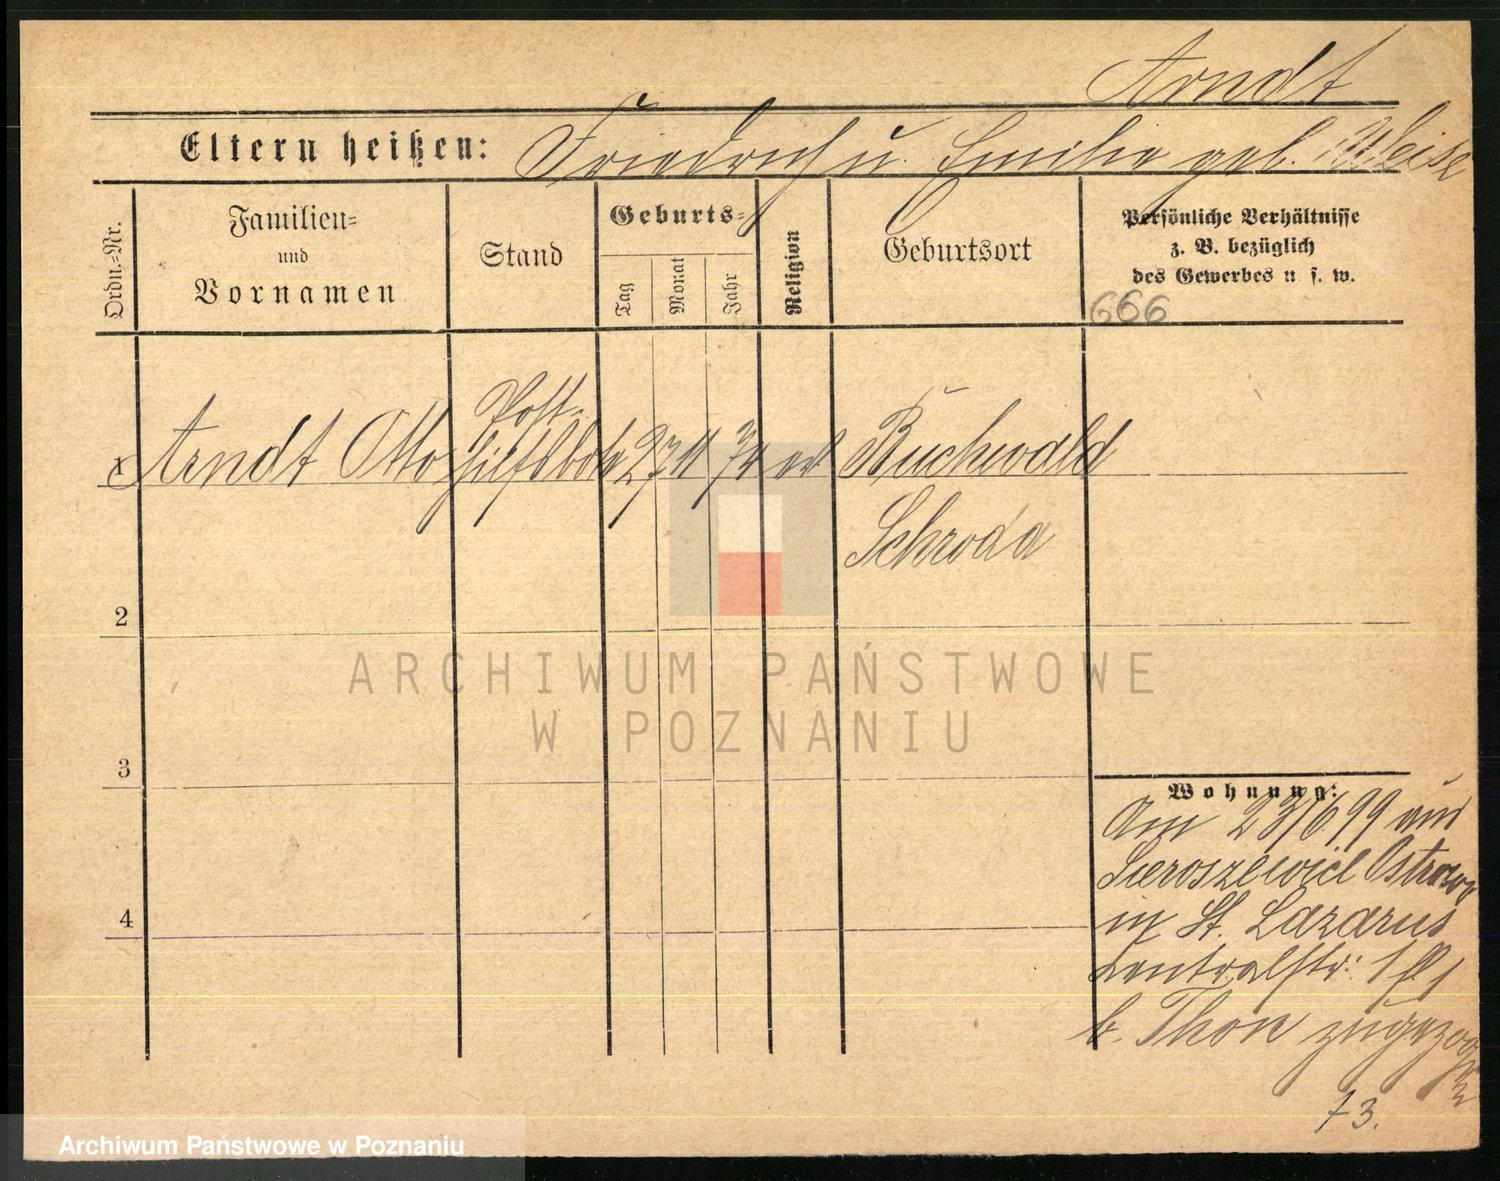 Arndt
Eltern heißen: Friedrich u. Emilie geb. Weise
Ordn.-Nr.
Familien-
und
Vornamen
Stand
Geburts-
Tag
Monat
Jahr
Religion
Geburtsort
Persönliche Verhältnisse
z. B. bezüglich
des Gewerbes u. s. w.
666
1 Arndt Otto Post- 27 11 74 ev Buchwald
Schroda
2
3
4
Wohnung:
Am 23/6 99 aus
Sieroszewice Ostrowo
in St. Lazarus
Centralstr: 1
b. Thon zugezogen
73.
ARCHIWUM PAŃSTWOWE
W POZNANIU
Archiwum Państwowe w Poznaniu